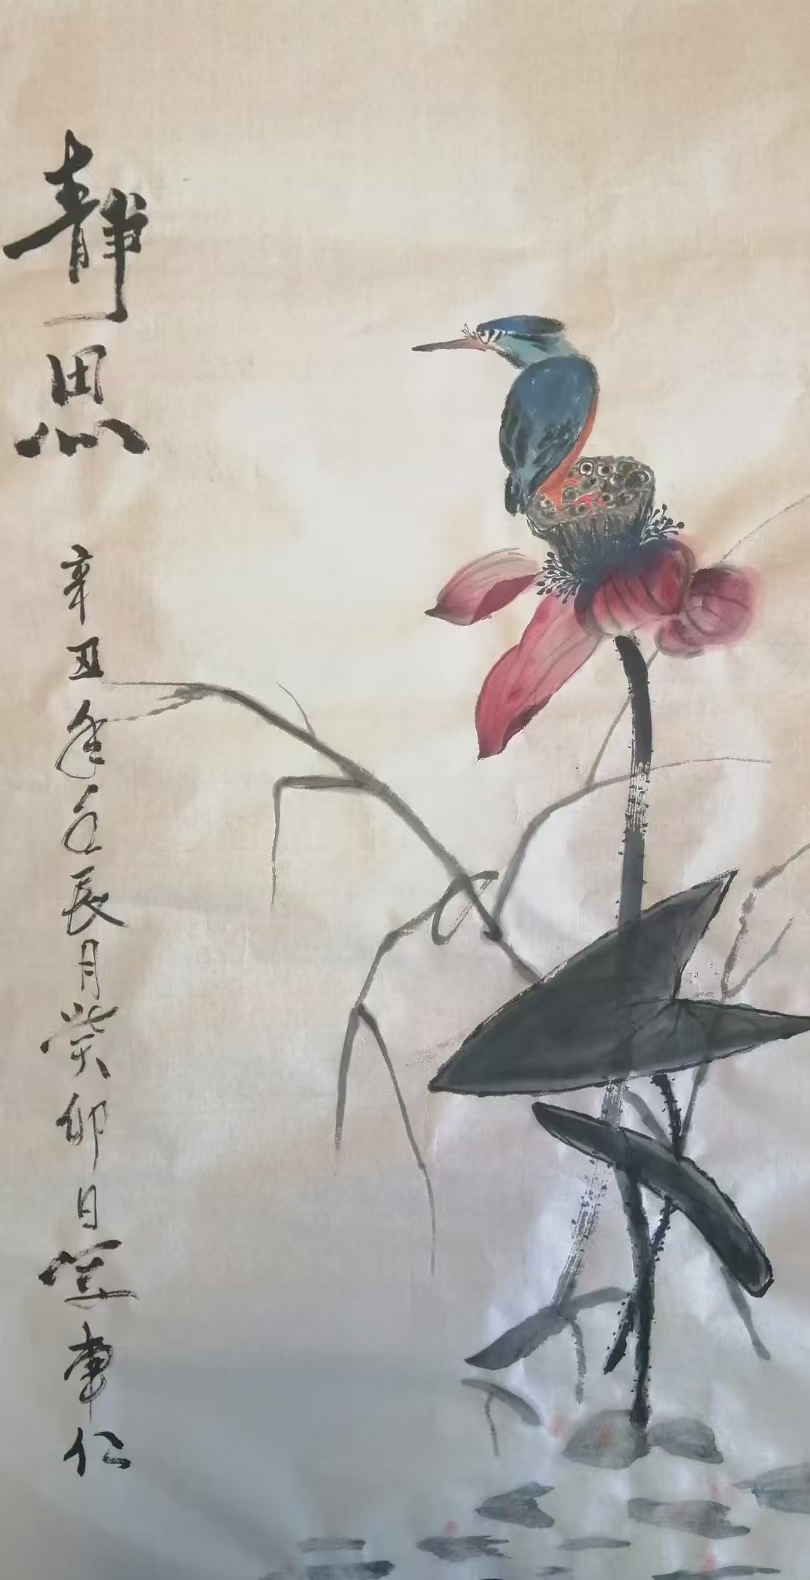 靜思
辛丑年壬辰月癸卯日